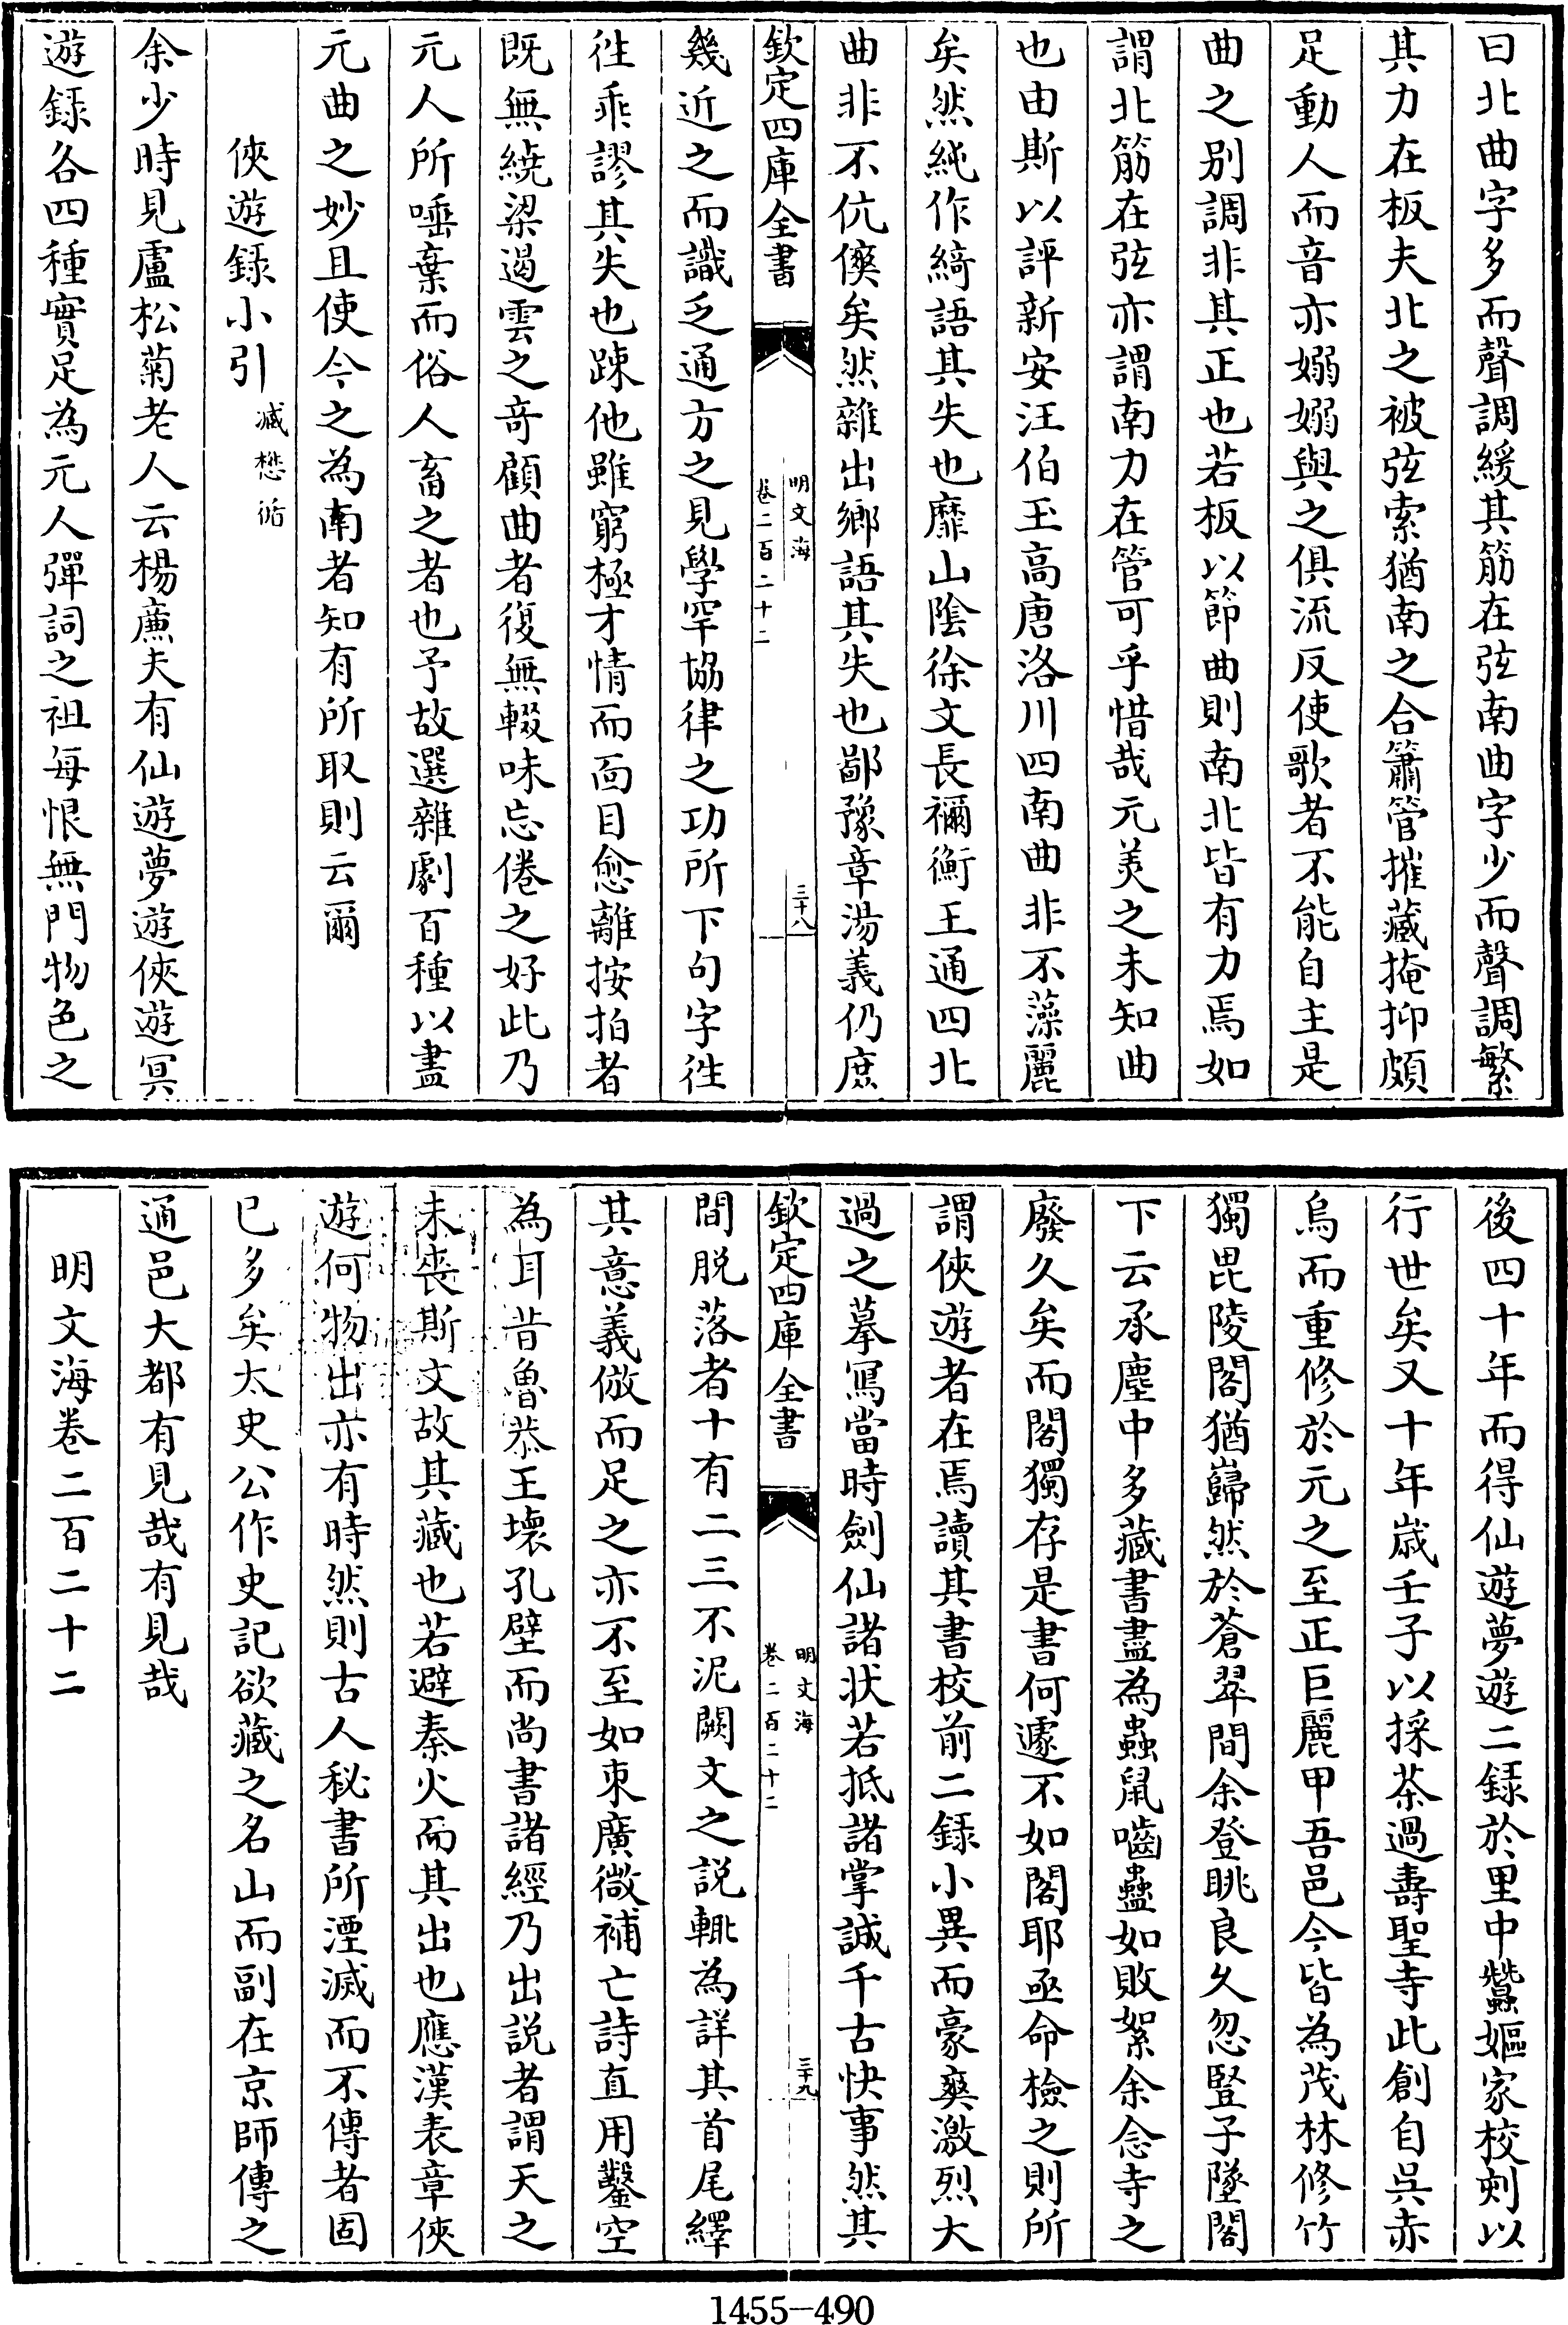 曰北曲字多而聲調緩其筋在弦南曲字少而聲調繁
其力在板夫北之被弦索猶南之合簫管摧藏掩抑頗
足動人而音亦嫋嫋與之俱流反使歌者不能自主是
曲之别調非其正也若板以節曲則南北皆有力焉如
謂北筋在弦亦謂南力在管可乎惜哉元美之未知曲
也由斯以評新安汪伯玉高唐洛川四南曲非不藻麗
矣然純作綺語其失也靡山陰徐文長禰衡王通四北
曲非不伉㑮矣然雜出鄉語其失也鄙豫章湯義仍庶
欽定四庫全書
明文海
卷二百二十二
三十八
幾近之而識乏通方之見學罕協律之功所下句字徃
徃乖謬其失也踈他雖窮極才情而面目愈離按拍者
既無繞梁遏雲之竒顧曲者復無輟味忘倦之好此乃
元人所唾棄而俗人畜之者也予故選雜劇百種以盡
元曲之妙且使今之為南者知有所取則云爾
俠遊録小引 臧懋循
余少時見盧松菊老人云楊㢘夫有仙遊夢遊俠遊㝠
遊録各四種實足為元人彈詞之祖每恨無門物色之
後四十年而得仙遊夢遊二録於里中蠶嫗家校刻以
行世矣又十年嵗壬子以採茶過壽聖寺此創自吳赤
烏而重修於元之至正巨麗甲吾邑今皆為茂林修竹
獨毘陵閣猶巋然於蒼翠間余登眺良久忽豎子墜閣
下云承塵中多藏書盡為蟲鼠嚙蠹如敗絮余念寺之
廢久矣而閣獨存是書何遽不如閣耶亟命檢之則所
謂俠遊者在焉讀其書校前二録小異而豪爽激烈大
過之摹寫當時劍仙諸状若抵諸掌誠千古快事然其
欽定四庫全書
明文海
卷二百二十二
三十九
間脱落者十有二三不泥闕文之説輙為詳其首尾繹
其意義倣而足之亦不至如束廣微補亡詩直用鑿空
為耳昔魯恭王壊孔壁而尚書諸經乃出説者謂天之
未喪斯文故其藏也若避秦火而其出也應漢表章俠
遊何物出亦有時然則古人秘書所湮滅而不傳者固
已多矣太史公作史記欲藏之名山而副在京師傳之
通邑大都有見哉有見哉
明文海卷二百二十二
1455-490